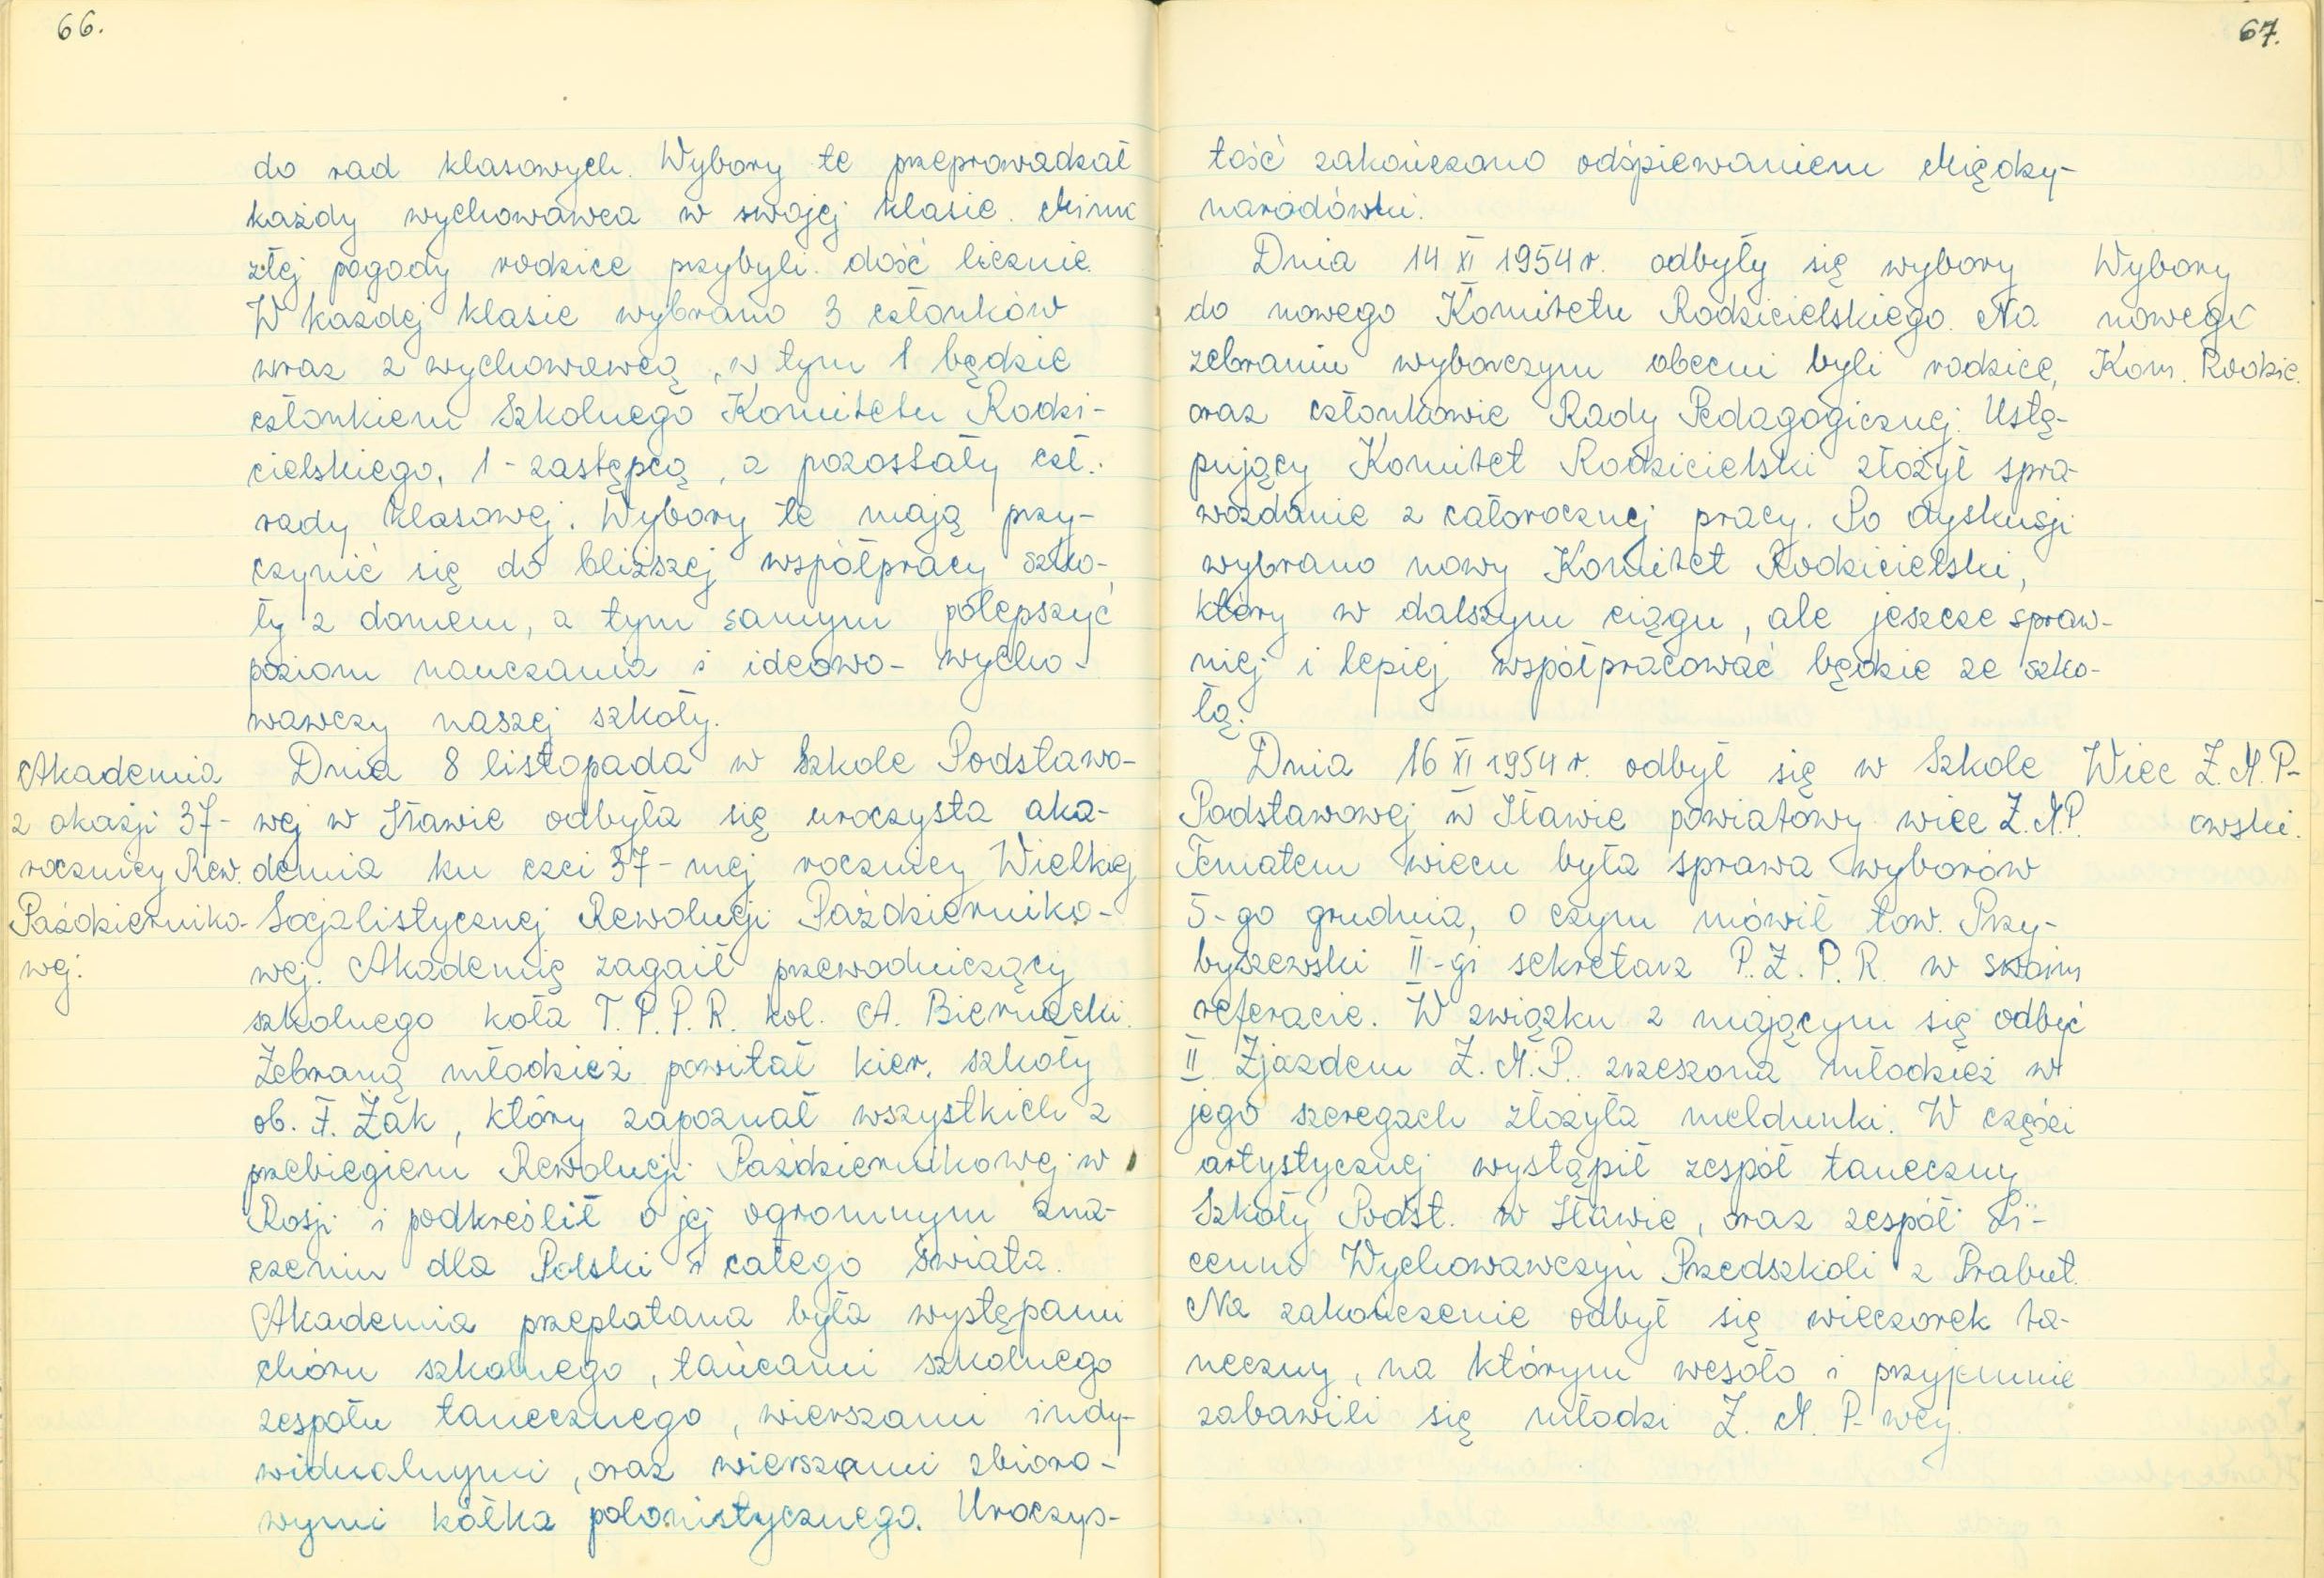 66.
do rad klasowych. Wybory te przeprowadzał
każdy wychowawca w swojej klasie. Mimo
złej pogody rodzice przybyli dość licznie.
W każdej klasie wybrano 3 członków
wraz z wychowawcą, w tym 1 będzie
członkiem Szkolnego Komitetu Rodzi-
cielskiego, 1 - zastępcą, a pozostały czł.
rady klasowej. Wybory te mają przy-
czynić się do bliższej współpracy szko-
ły z domem, a tym samym polepszyć
poziom nauczania i ideowo - wycho-
wawczy naszej szkoły.
Akademia
z okazji 37-
rocznicy Rew.
Październiko-
wej.
Dnia 8 listopada w Szkole Podstawo-
wej w Iławie odbyła się uroczysta aka-
demia ku czci 37-mej rocznicy Wielkiej
Socjalistycznej Rewolucji Październiko-
wej. Akademię zagaił przewodniczący
szkolnego koła T.P.P.R. kol. A. Biernacki.
Zebraną młodzież powitał kier. szkoły
ob. F. Żak, który zapoznał wszystkich z
przebiegiem Rewolucji Październikowej w
Rosji i podkreślił o jej ogromnym zna-
czeniu dla Polski i całego świata.
Akademia przeplatana była występami
chóru szkolnego, tańcami szkolnego
zespołu tanecznego, wierszami indy-
widualnymi, oraz wierszami zbioro-
wymi kółka polonistycznego. Uroczys-
67.
tość zakończono odśpiewaniem Między-
narodówki.
Dnia 14 XI 1954 r. odbyły się wybory
do nowego Komitetu Rodzicielskiego. Na
zebraniu wyborczym obecni byli rodzice,
oraz członkowie Rady Pedagogicznej. Ustę-
pujący Komitet Rodzicielski złożył spra-
wozdanie z całorocznej pracy. Po dyskusji
wybrano nowy Komitet Rodzicielski,
który w dalszym ciągu, ale jeszcze spraw-
niej i lepiej współpracować będzie ze szko-
łą.
Wybory
nowego
Kom. Rodzic.
Dnia 16 XI 1954 r. odbył się w Szkole
Podstawowej w Iławie powiatowy wiec Z.M.P.
Tematem wiecu była sprawa wyborów
5-go grudnia, o czym mówił tow. Przy-
byszewski II-gi sekretarz P.Z.P.R. w swoim
referacie. W związku z mającym się odbyć
II Zjazdem Z.M.P. zrzeszona młodzież w
jego szeregach złożyła meldunki. W części
artystycznej wystąpił zespół taneczny
Szkoły Podst. w Iławie, oraz zespół Li-
ceum Wychowawczyń Przedszkoli z Prabut.
Na zakończenie odbył się wieczorek ta-
neczny, na którym wesoło i przyjemnie
zabawili się młodzi Z.M.P-wcy.
Wiec Z.M.P-
owski.